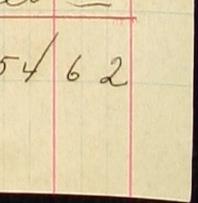 54/ 62